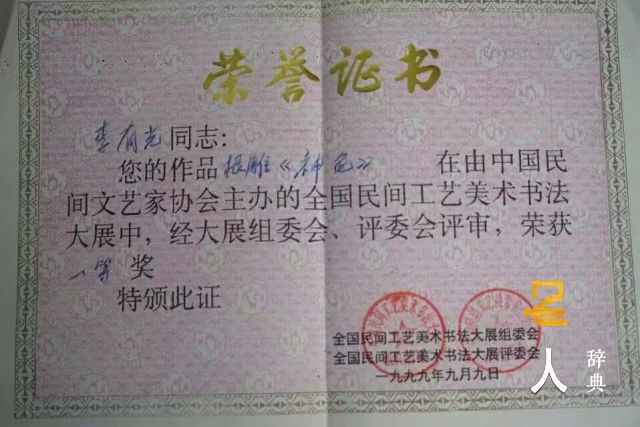 荣誉证书
李有光同志:
您的作品根雕《神龟》 在由中国民
间文艺家协会主办的全国民间工艺美术书法
大展中，经大展组委会、评委会评审，荣获
一等 奖
特颁此证
全国民间工艺美术书法大展组委会
全国民间工艺美术书法大展评委会
一九九九年九月九日
人
辞典